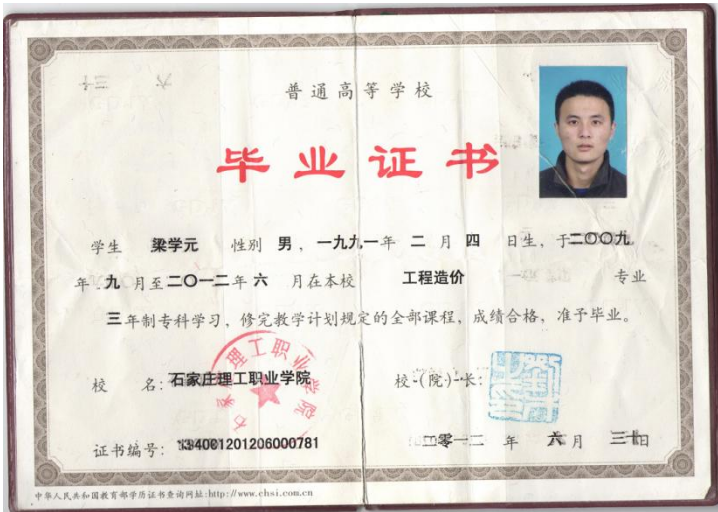 普通高等学校
毕业证书
学生 梁学元 性别 男，一九九一年 二 月 四 日生，于二〇〇九
年 九 月至二〇一二年 六 月在本校 工程造价 专业
三年制专科学习，修完教学计划规定的全部课程，成绩合格，准予毕业。
校 名：石家庄理工职业学院
校（院）长：
石家庄理工职业学院
证书编号：
二零一二 年 六 月 三十日
中华人民共和国教育部学历证书查询网址:http://www.chsi.com.cn